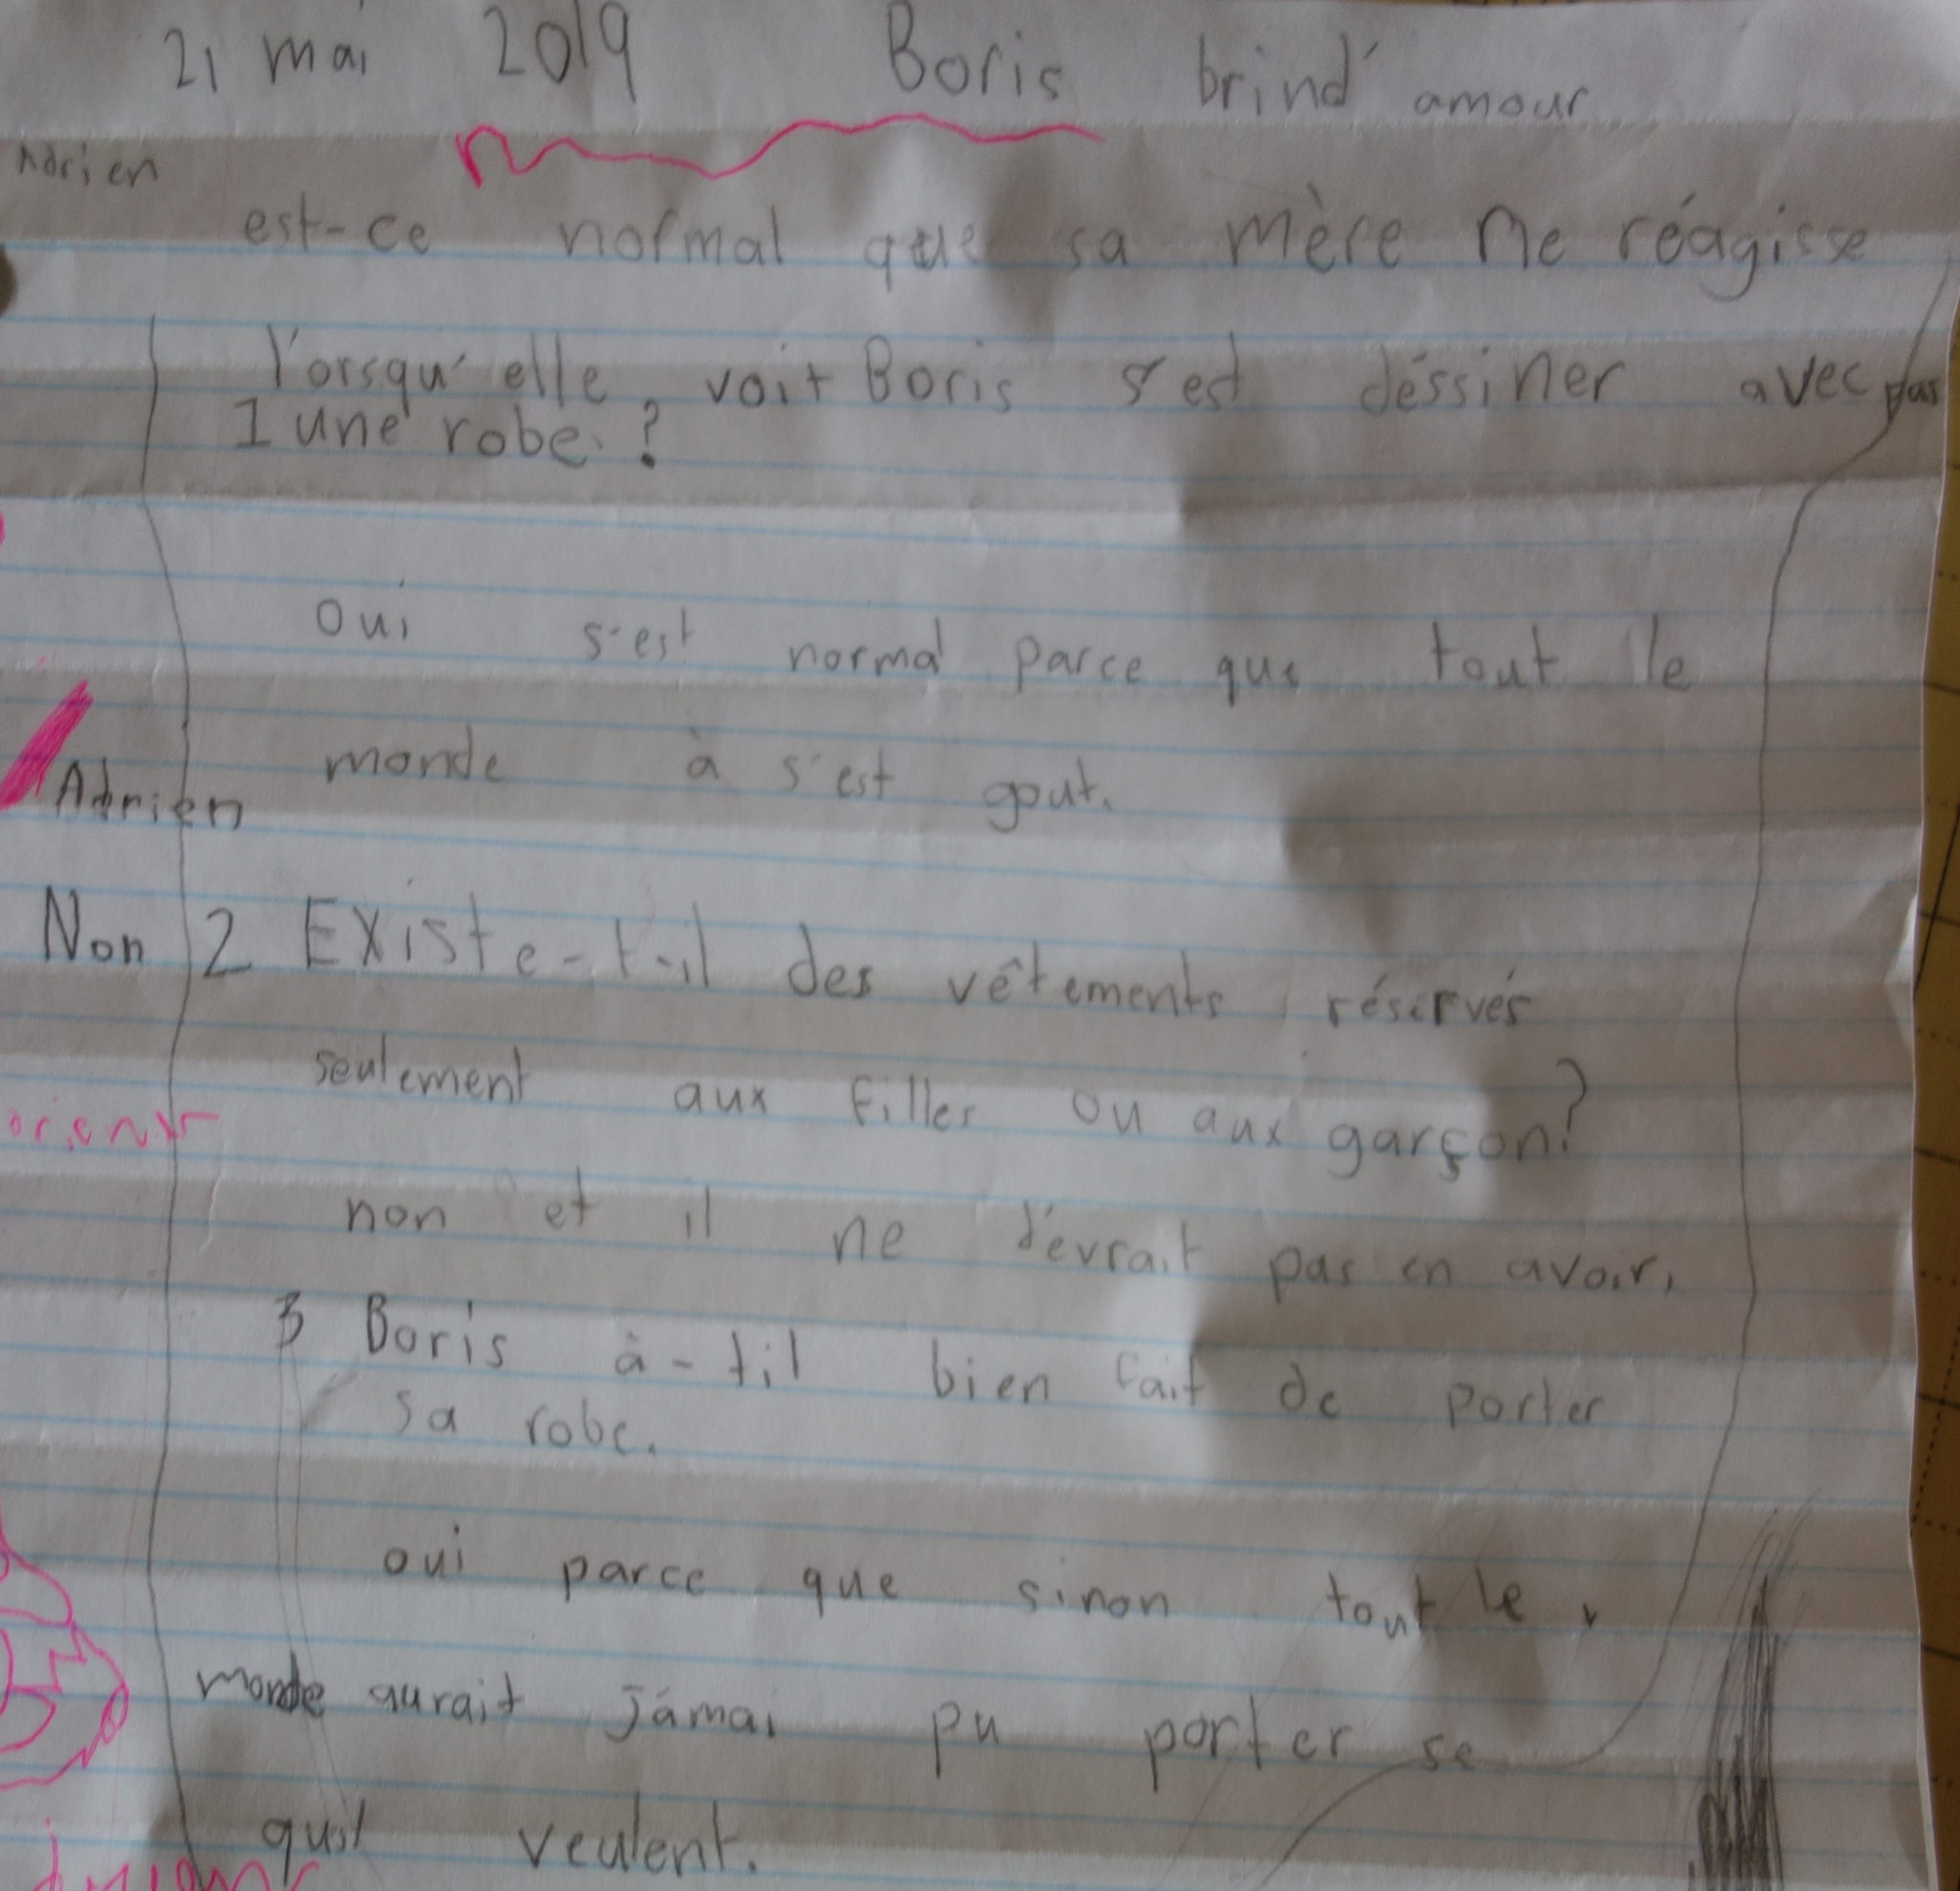 21 mai 2019 Boris brind'amour
Adrien
est-ce normal que sa mère ne réagisse
pas
lorsqu'elle voit Boris s'est déssiner avec
1 une robe.?
oui s'est normal parce que tout le
monde à s'est gout.
Adrien
Non 2 Existe-t-il des vêtements résérvés
seulement aux filles ou aux garçon?
non et il ne dévrait pas en avoir.
3 Boris à-til bien fait de porter
sa robe.
oui parce que sinon tout le
monde aurait jámai pu porter se
quil veulent.